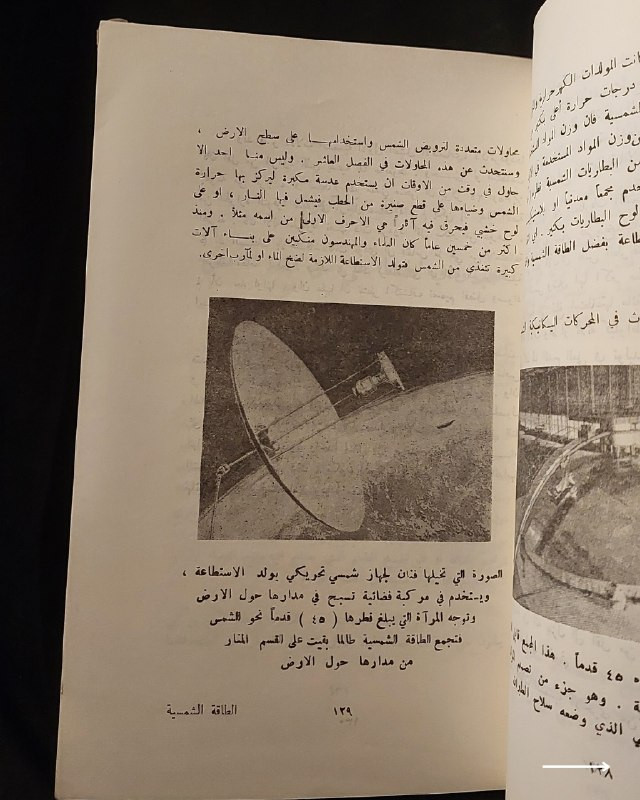 محاولات متعددة لترويض الشمس واستخدامها على سطح الارض ،
وسنتحدث عن هذه المحاولات في الفصل العاشر . وليس منا احد إلا
حاول في وقت من الاوقات ان يستخدم عدسة مكبرة ليركز بها حرارة
الشمس وضياءها على قطع صغيرة من الحطب فيشعل فيها النار ، او على
لوح خشبي فيحرق فيه آثاراً هي الاحرف الاولى من اسمه مثلاً . ومنذ
اكثر من خمسين عاماً كان العلماء والمهندسون منكبين على بناء آلات
كبيرة تتغذى من الشمس فتولد الاستطاعة اللازمة لضخ الماء او لمآرب اخرى.
الصورة التي تخيلها فنان لجهاز شمسي تحريكي يولد الاستطاعة ،
ويستخدم في مركبة فضائية تسبح في مدارها حول الارض
وتوجه المرآة التي يبلغ قطرها ( ٤٥ ) قدماً نحو الشمس
فتجمع الطاقة الشمسية طالما بقيت على القسم المنار
من مدارها حول الارض
١٢٩
الطاقة الشمسية
كانت المولدات الكهرحرارية
درجات حرارة أعلى
الشمسية فان وزن المواد
وزن المواد المستخدمة في
من البطاريات الشمسية
مجمعاً معدنياً او
لوح البطاريات بكثير .
بفضل الطاقة
في المحركات الميكانيكية
٤٥ قدماً . هذا المجمع
. وهو جزء من تصميم
الذي وضعه سلاح الطيران
١٢٨